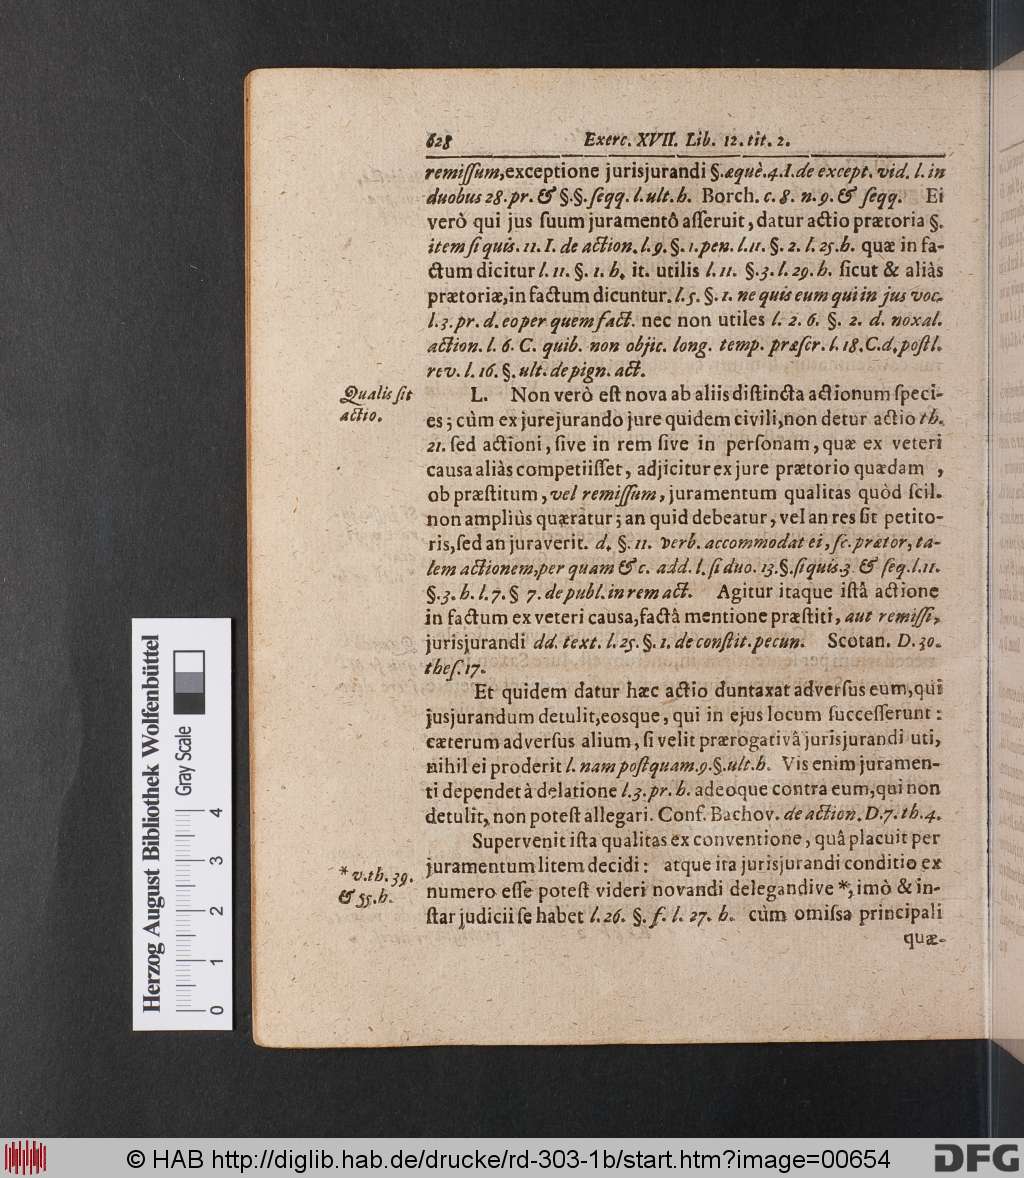 628 Exerc. XVII. Lib. 12. tit. 2.
remiſſum, exceptione jurisjurandi §. æquè. 4. I. de except. vid. l. in
duobus 28. pr. & §.§. ſeqq. l. ult. h. Borch. c. 8. n. 9. & ſeqq. Ei
verò qui jus ſuum juramentô aſſeruit, datur actio prætoria §.
item ſi quis. 11. I. de action. l. 9. §. 1. pen. l. 11. §. 2. l. 25. h. quæ in fa-
ctum dicitur l. 11. §. 1. h. it. utilis l. 11. §. 3. l. 29. h. ſicut & aliàs
prætoriæ, in factum dicuntur. l. 5. §. 1. ne quis eum qui in jus voc.
l. 3. pr. d. eo per quem fact. nec non utiles l. 2. 6. §. 2. d. noxal.
action. l. 6. C. quib. non objic. long. temp. præſcr. l. 18. C. d. poſtl.
rev. l. 16. §. ult. de pign. act.
Qualis ſit
actio.
L. Non verò eſt nova ab aliis diſtincta actionum ſpeci-
es; cùm ex jurejurando jure quidem civili, non detur actio th.
21. ſed actioni, ſive in rem ſive in perſonam, quæ ex veteri
cauſa aliàs competiiſſet, adjicitur ex jure prætorio quædam ,
ob præſtitum, vel remiſſum, juramentum qualitas quòd ſcil.
non ampliùs quæratur; an quid debeatur, vel an res ſit petito-
ris, ſed an juraverit. d. §. 11. verb. accommodat ei, ſc. prætor, ta-
lem actionem, per quam & c. add. l. ſi duo. 13. §. ſi quis. 3 & ſeq. l. 11.
§. 3. h. l. 7. § 7. de publ. in rem act. Agitur itaque iſtâ actione
in factum ex veteri cauſa, factâ mentione præſtiti, aut remiſſi,
jurisjurandi dd. text. l. 25. §. 1. de conſtit. pecun. Scotan. D. 30.
theſ. 17.
Et quidem datur hæc actio duntaxat adverſus eum, qui
jusjurandum detulit, eosque, qui in ejus locum ſucceſſerunt:
cæterum adverſus alium, ſi velit prærogativâ jurisjurandi uti,
nihil ei proderit l. nam poſtquam. 9. §. ult. h. Vis enim juramen-
ti dependet à delatione l. 3. pr. h. adeoque contra eum, qui non
detulit, non poteſt allegari. Conf. Bachov. de action. D. 7. th. 4.
Supervenit iſta qualitas ex conventione, quâ placuit per
juramentum litem decidi: atque ita jurisjurandi conditio ex
numero eſſe poteſt videri novandi delegandive *, imò & in-
ſtar judicii ſe habet l. 26. §. f. l. 27. h. cùm omiſsa principali
* v. th. 39.
& 55. h.
quæ-
Herzog August Bibliothek Wolfenbüttel
Gray Scale
0 1 2 3 4
© HAB http://diglib.hab.de/drucke/rd-303-1b/start.htm?image=00654
DFG